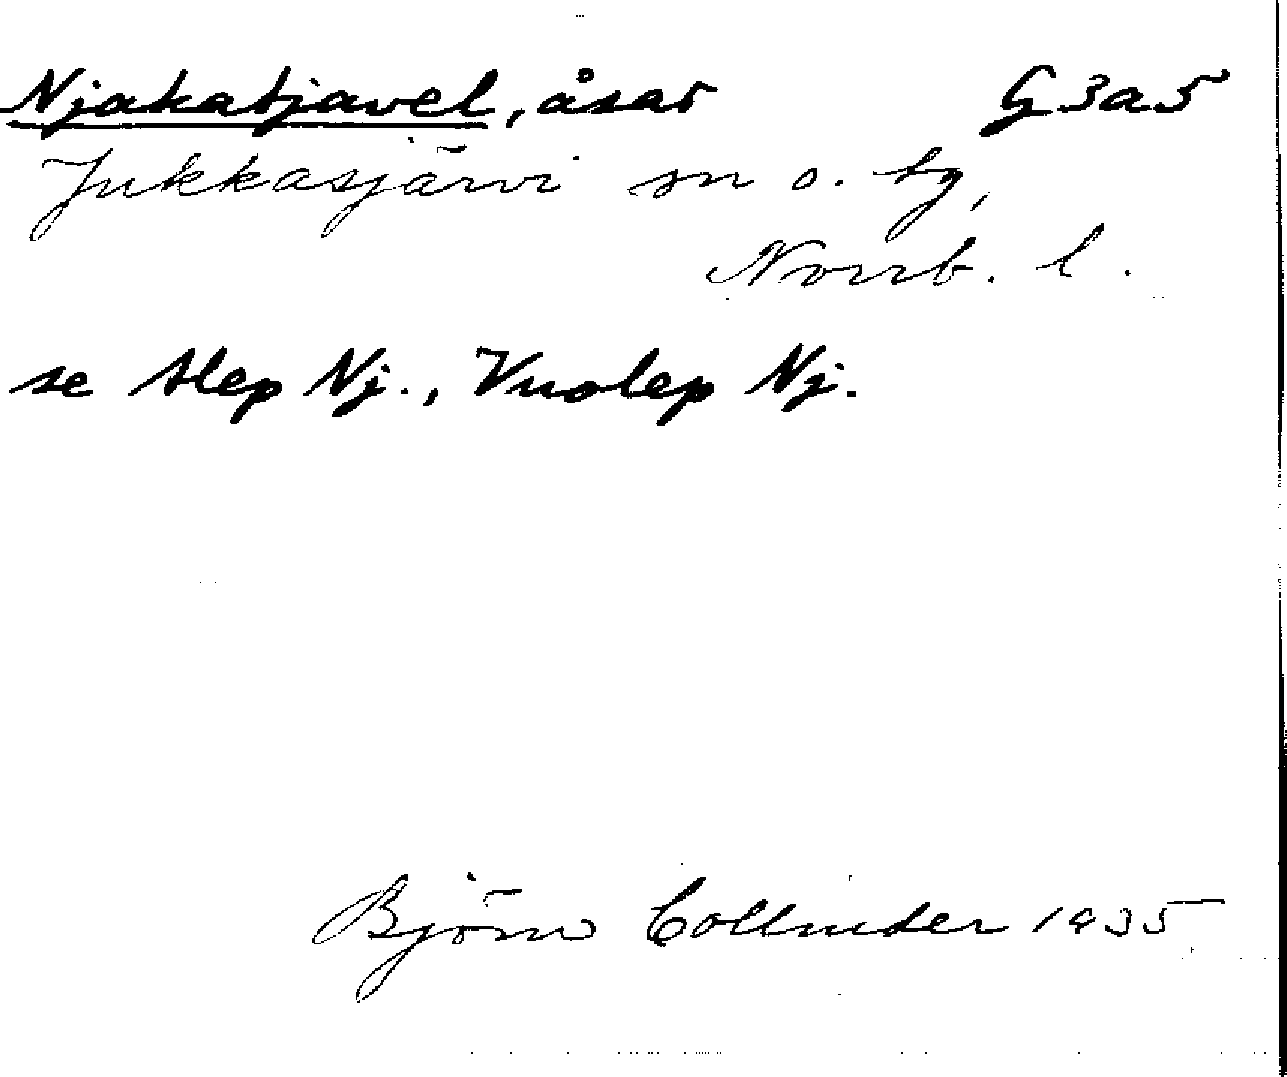 Njakatjavel, åsar G3a5
Jukkasjärvi sn o. tg,
Norrb. l.
se Alep Nj., Vuolep Nj.
Björn Collinder 1935